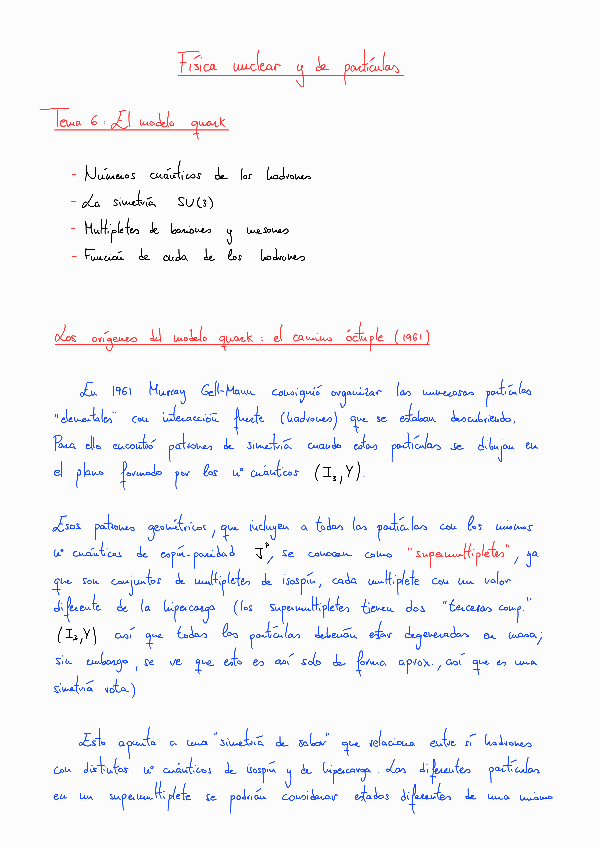 Física nuclear y de partículas
Tema 6: El modelo quark
- Números cuánticos de los hadrones
- La simetría SU(3)
- Multipletes de bariones y mesones
- Función de onda de los hadrones
Los orígenes del modelo quark: el camino óctuple (1961)
En 1961 Murray Gell-Mann consiguió organizar las numerosas partículas
"elementales" con interacción fuerte (hadrones) que se estaban descubriendo.
Para ello encontró patrones de simetría cuando estas partículas se dibujan en
el plano formado por los nº cuánticos (I₃,Y).
Esos patrones geométricos, que incluyen a todas las partículas con los mismos
nº cuánticos de espín-paridad Jᴾ, se conocen como "supermultipletes", ya
que son conjuntos de multipletes de isospín, cada multiplete con un valor
diferente de la hipercarga (los supermultipletes tienen dos "terceras comp."
(I₃,Y) así que todas las partículas deberían estar degeneradas en masa;
sin embargo, se ve que esto es así solo de forma aprox., así que es una
simetría rota)
Esto apunta a una "simetría de sabor" que relaciona entre sí hadrones
con distintos nº cuánticos de isospín y de hipercarga. Las diferentes partículas
en un supermultiplete se podrían considerar estados diferentes de una misma